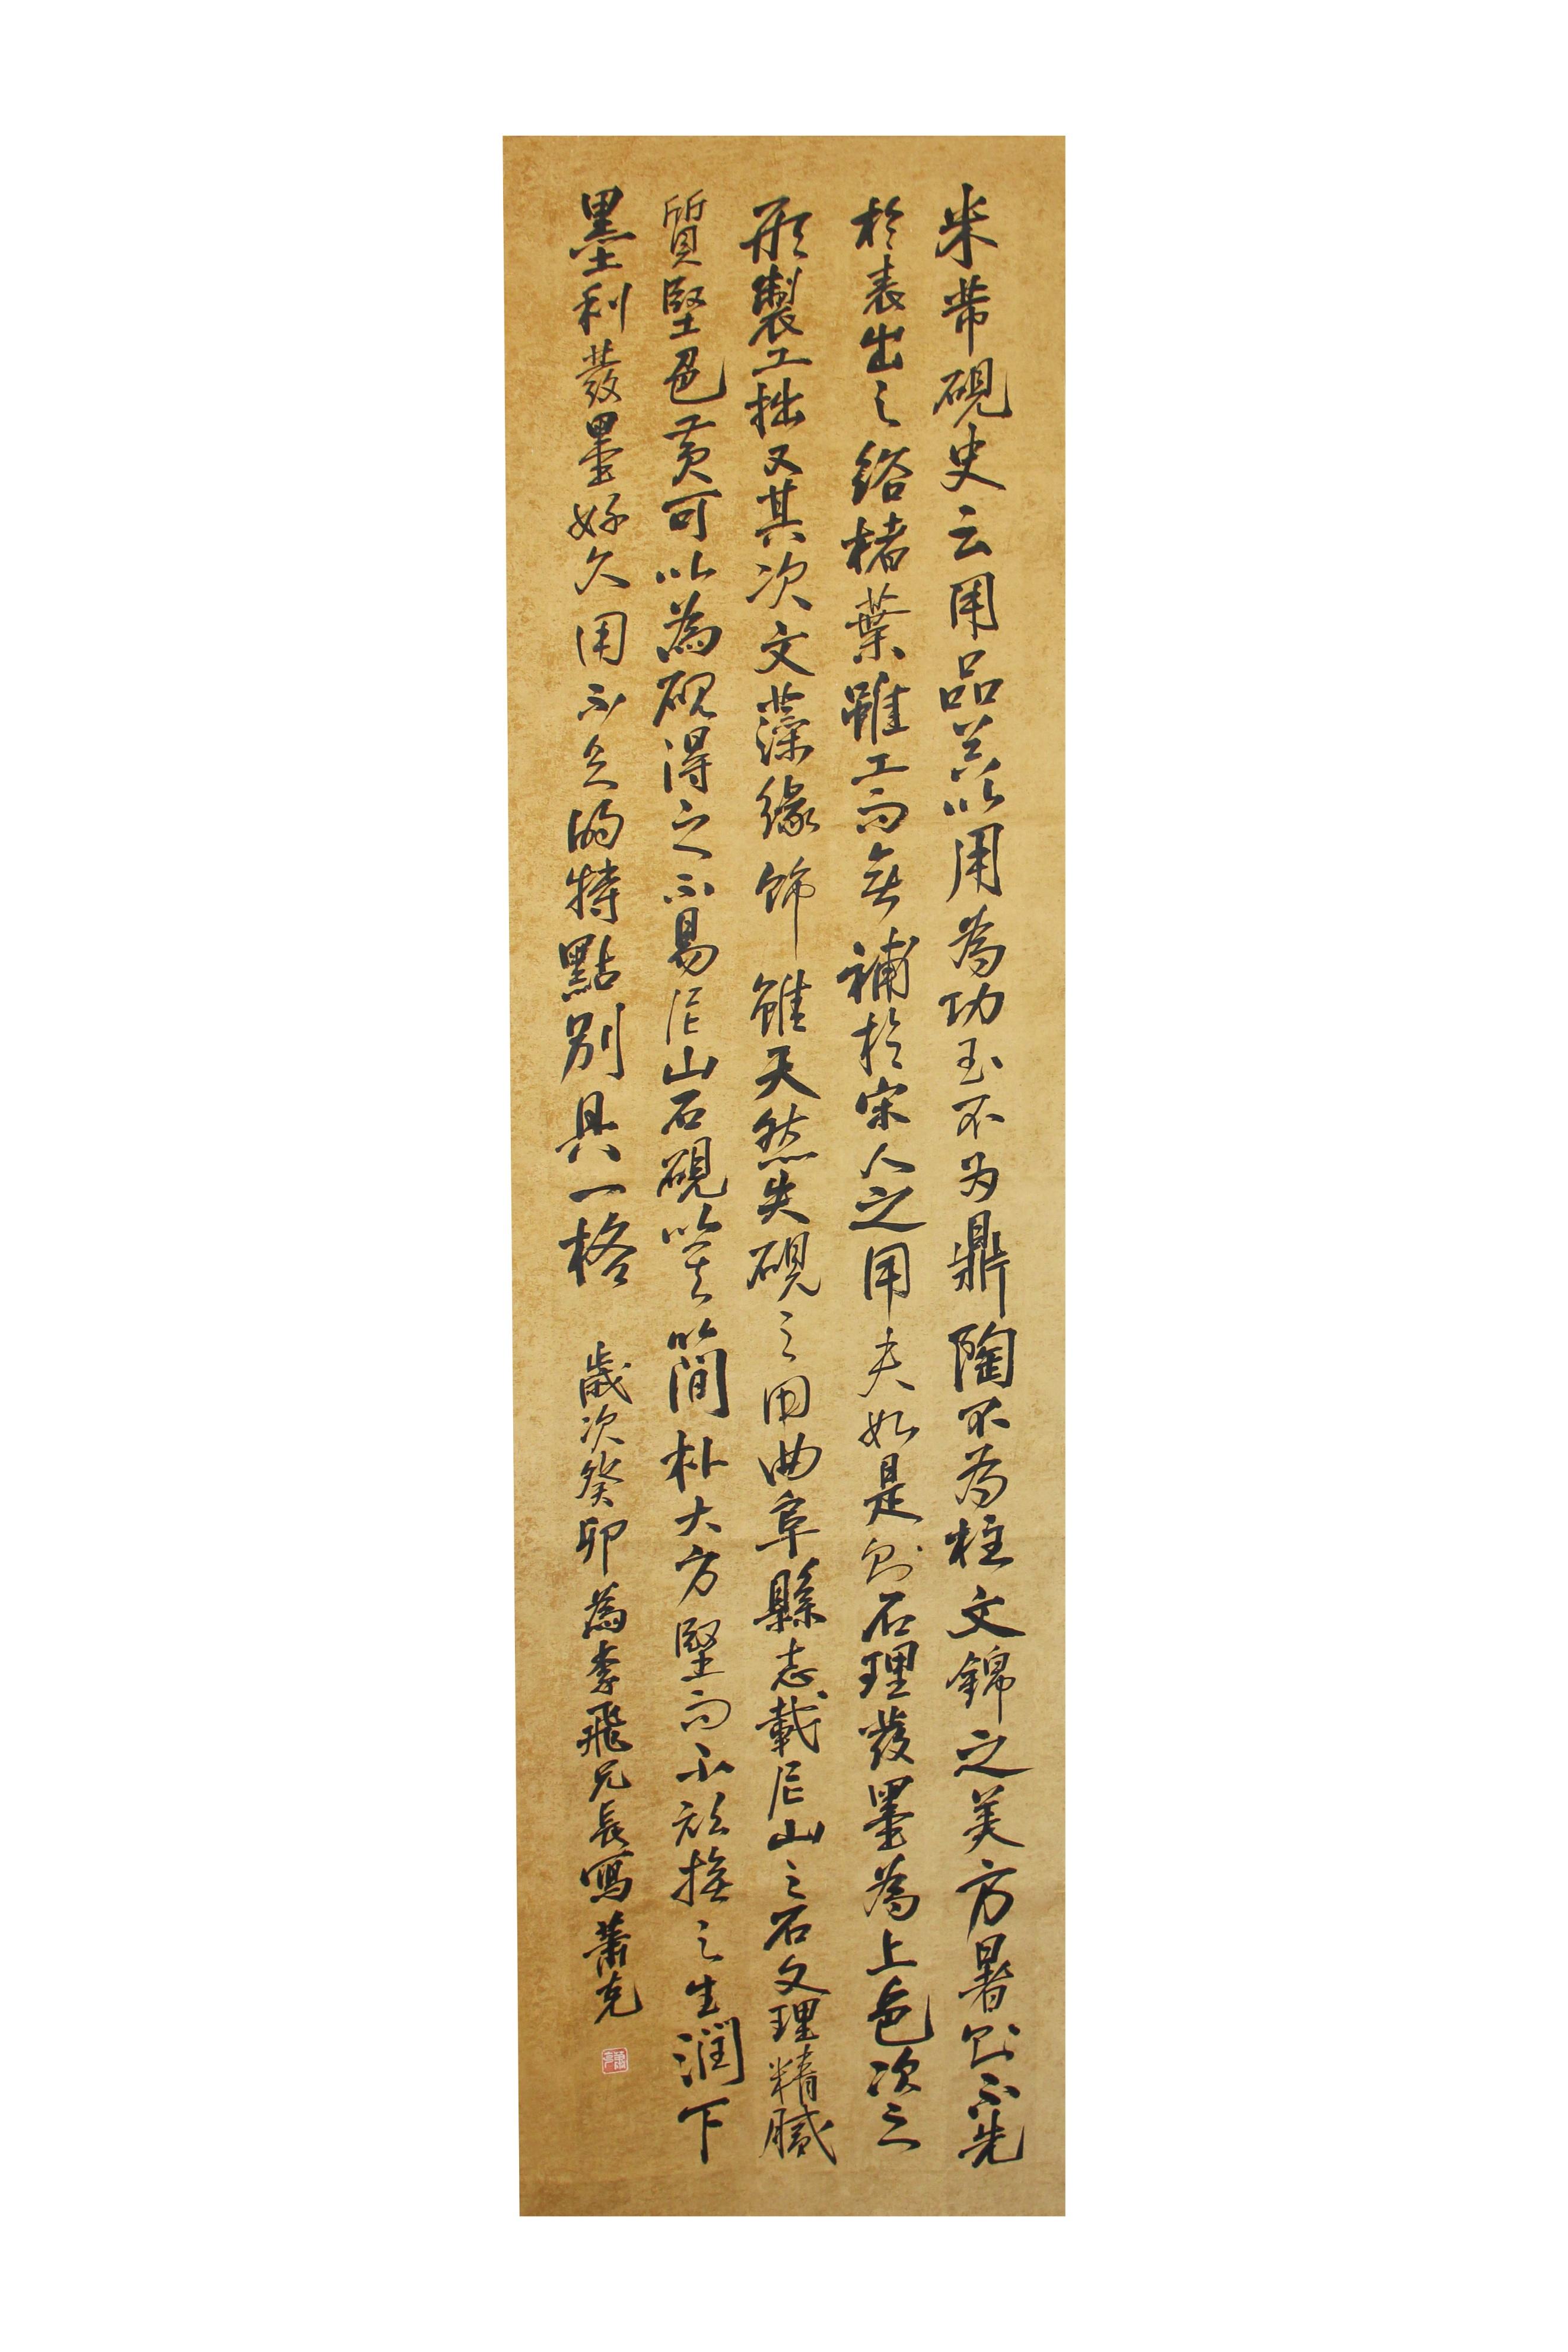 米芾硯史云用品器以用為功玉不为鼎陶不為柱文錦之美方暑則不先
於表出之綌楮葉雖工而無補於宋人之用夫如是則石理發墨為上色次之
形製工拙又其次文藻緣飾雖天然失硯之用曲阜縣志載尼山之石文理精膩
質堅色黄可以為硯得之不易尼山石硯以其簡朴大方堅而不頑撫之生潤下
墨利發墨好久用不乏的特點别具一格 歲次癸卯為李飛兄長寫蕭克